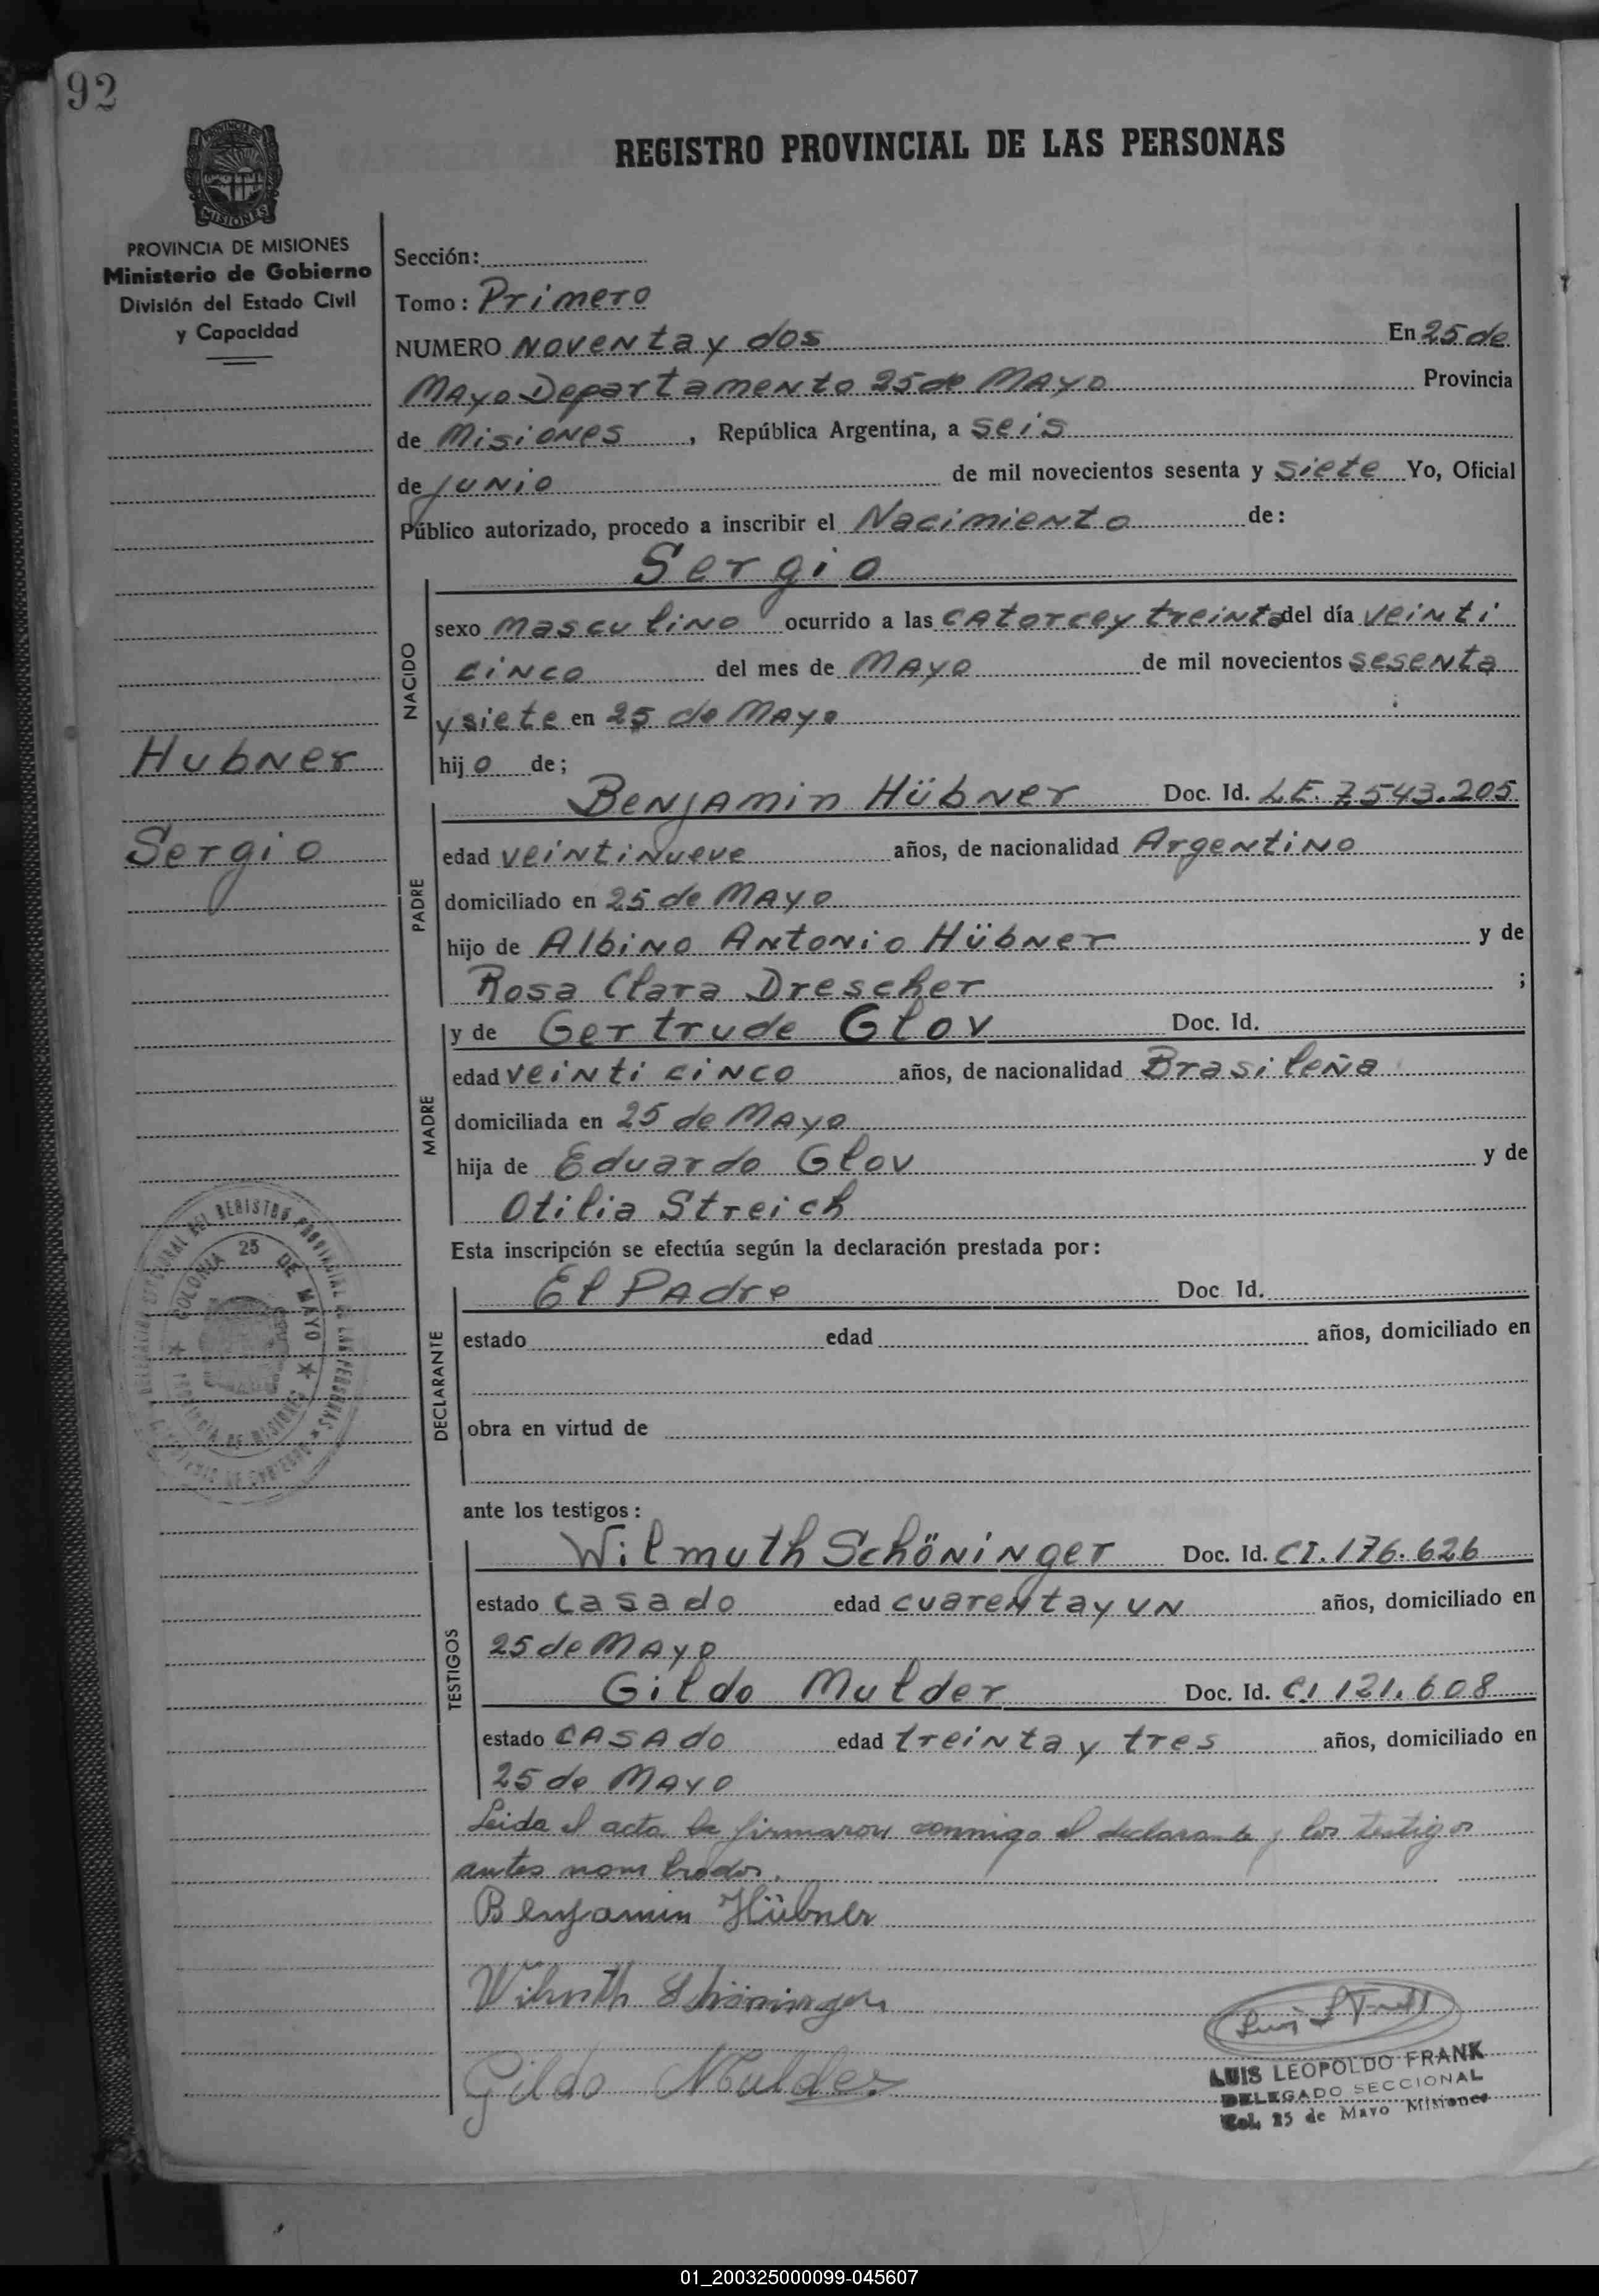 92
REGISTRO PROVINCIAL DE LAS PERSONAS
PROVINCIA DE
MISIONES
PROVINCIA DE MISIONES
Ministerio de Gobierno
División del Estado Civil
y Capacidad
Sección:
Tomo: Primero
NUMERO Noventa y dos En 25 de
Mayo Departamento 25 de Mayo Provincia
de Misiones, República Argentina, a seis
de Junio de mil novecientos sesenta y siete Yo, Oficial
Público autorizado, procedo a inscribir el Nacimiento de:
Sergio
NACIDO
sexo masculino ocurrido a las catorce y treinta del día veinti
cinco del mes de Mayo de mil novecientos sesenta
y siete en 25 de Mayo
hijo de;
Hubner
Sergio
PADRE
Benjamin Hübner Doc. Id. LE 7543.205
edad veintinueve años, de nacionalidad Argentino
domiciliado en 25 de Mayo
hijo de Albino Antonio Hübner y de
Rosa Clara Drescher ;
MADRE
y de Gertrude Glov Doc. Id.
edad veinti cinco años, de nacionalidad Brasileña
domiciliada en 25 de Mayo
hija de Eduardo Glov y de
Otilia Streich
Esta inscripción se efectúa según la declaración prestada por:
DECLARANTE
El Padre Doc. Id.
estado edad años, domiciliado en
obra en virtud de
DEL REGISTRO PROVINCIAL DE LAS PERSONAS
COLONIA 25 DE MAYO
PROVINCIA DE MISIONES
ante los testigos:
TESTIGOS
Wilmuth Schöninger Doc. Id. CI. 176.626
estado casado edad cuarenta y un años, domiciliado en
25 de Mayo
Gildo Mulder Doc. Id. CI 121.608
estado casado edad treinta y tres años, domiciliado en
25 de Mayo
Leida el acta la firmaron conmigo el declarante y los testigos
antes nombrados.
Benjamin Hübner
Wilmuth Schöninger
Gildo Mulder
LUIS LEOPOLDO FRANK
DELEGADO SECCIONAL
Col. 25 de Mayo Misiones
01_200325000099-045607